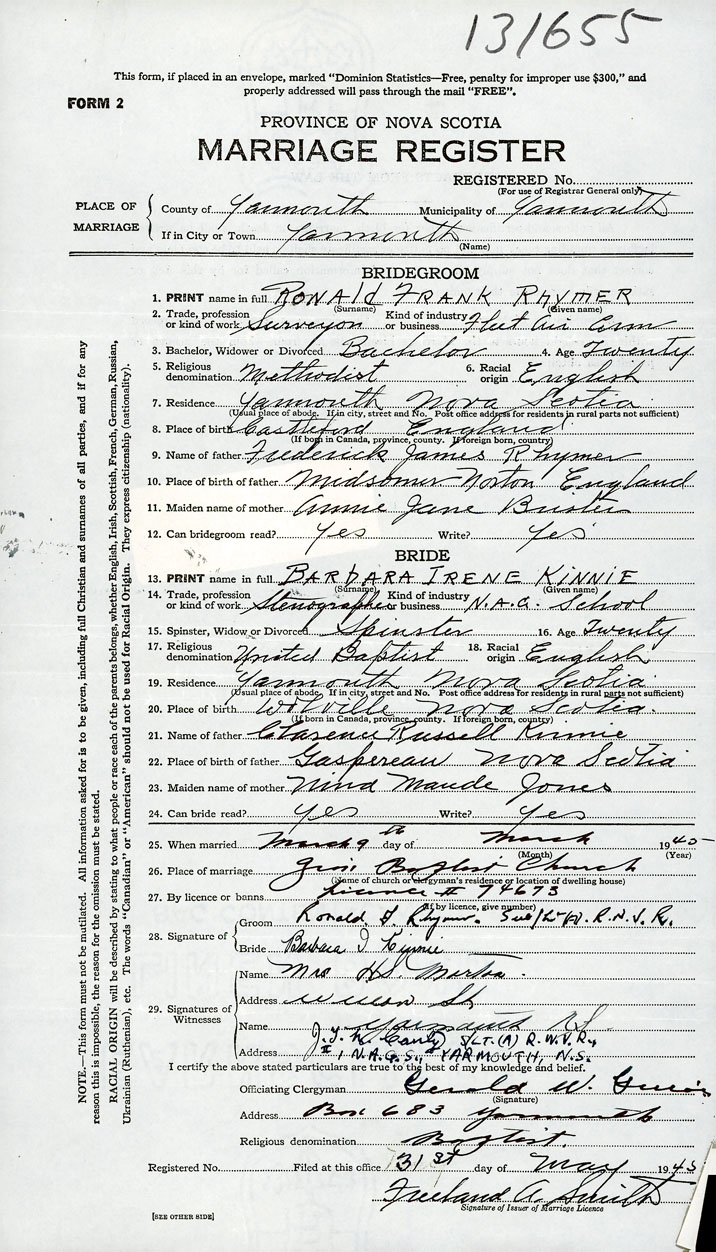 131655
This form, if placed in an envelope, marked "Dominion Statistics—Free, penalty for improper use $300," and
properly addressed will pass through the mail "FREE".
FORM 2
PROVINCE OF NOVA SCOTIA
MARRIAGE REGISTER
REGISTERED No.
(For use of Registrar General only)
PLACE OF MARRIAGE
County of Yarmouth Municipality of Yarmouth
If in City or Town Yarmouth
(Name)
BRIDEGROOM
1. PRINT name in full RONALD FRANK RHYMER
(Surname) (Given name)
2. Trade, profession or kind of work Surveyor Kind of industry or business Fleet Air Arm
3. Bachelor, Widower or Divorced Bachelor 4. Age Twenty
5. Religious denomination Methodist 6. Racial origin English
7. Residence Yarmouth Nova Scotia
(Usual place of abode. If in city, street and No. Post office address for residents in rural parts not sufficient)
8. Place of birth Castleford England
(If born in Canada, province, county. If foreign born, country)
9. Name of father Frederick James Rhymer
10. Place of birth of father Midsomer Norton England
11. Maiden name of mother Annie Jane
12. Can bridegroom read? Yes Write? Yes
BRIDE
13. PRINT name in full BARBARA IRENE KINNIE
(Surname) (Given name)
14. Trade, profession or kind of work Stenographer Kind of industry or business N.A.G. School
15. Spinster, Widow or Divorced Spinster 16. Age Twenty
17. Religious denomination United Baptist 18. Racial origin English
19. Residence Yarmouth Nova Scotia
(Usual place of abode. If in city, street and No. Post office address for residents in rural parts not sufficient)
20. Place of birth Wolville Nova Scotia.
(If born in Canada, province, county. If foreign born, country)
21. Name of father Clarence Russell Kinnie
22. Place of birth of father Gaspereau Nova Scotia
23. Maiden name of mother Nina Maude Jones
24. Can bride read? Yes Write? Yes
25. When married March 9th day of March 1945
(Month) (Year)
26. Place of marriage Baptist Church
(Name of church or clergyman's residence or location of dwelling house)
27. By licence or banns licence # 74673
(If by licence, give number)
28. Signature of
Groom Ronald F Rhymer. Sub/Lt (A). R.N.V.R.
Bride Barbara I Kinnie
29. Signatures of Witnesses
Name Mrs HS.
Address St
Yarmouth NS
Name J.J. S/LT.(A) R.N.V.R.,
Address I, N.A.G.S., YARMOUTH, N.S.
I certify the above stated particulars are true to the best of my knowledge and belief.
Officiating Clergyman Gerald W.
(Signature)
Address Box 683 Yarmouth
Religious denomination Baptist.
Registered No. Filed at this office 31st day of May 1945
Freeland A. Smith
Signature of Issuer of Marriage Licence
[SEE OTHER SIDE]
NOTE.—This form must not be mutilated. All information asked for is to be given, including full Christian and surnames of all parties, and if for any
reason this is impossible, the reason for the omission must be stated.
RACIAL ORIGIN will be described by stating to what people or race each of the parents belongs, whether English, Irish, Scottish, French, German, Russian,
Ukrainian (Ruthenian), etc. The words "Canadian" or "American" should not be used for Racial Origin. They express citizenship (nationality).